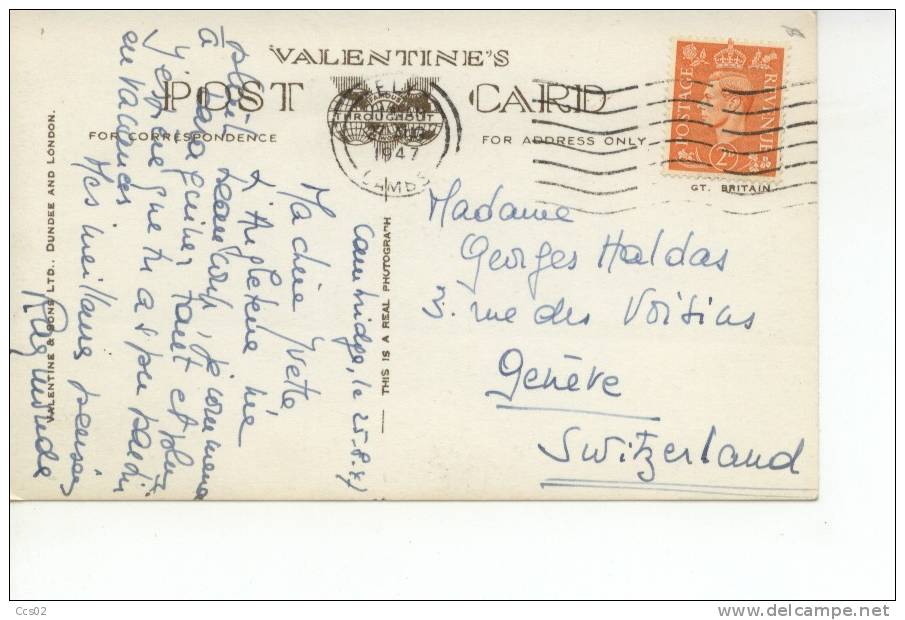 VALENTINE'S
POST CARD
FOR CORRESPONDENCE
FOR ADDRESS ONLY
THROUGHOUT
ELY
1947
CAMBS
POSTAGE
REVENUE
2D
GT. BRITAIN.
Madame
Georges Haldas
rue des Voisins
Genève
Switzerland
THIS IS A REAL PHOTOGRAPH
VALENTINE & SONS LTD., DUNDEE AND LONDON.
Cambridge, le 25.8.47
Ma chère Yvette
L'Angleterre me
plaît beaucoup, je commence
à baragouiner tant et plus
J'espère que tu as pu partir
en vacances
Mes meilleures pensées
Raymonde
Ccs02
www.delcampe.net